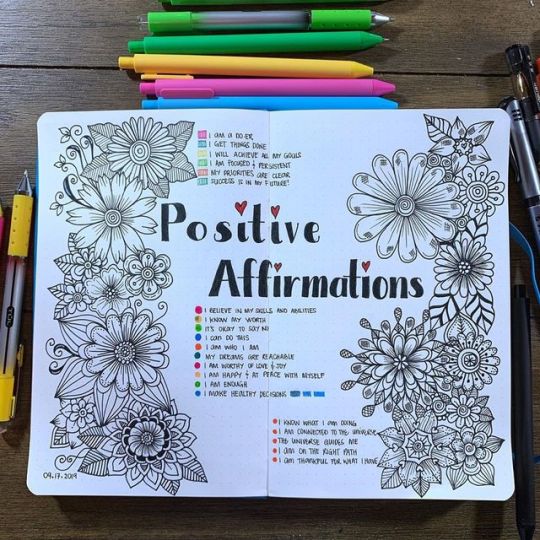 I AM A DO-ER
I GET THINGS DONE
I WILL ACHIEVE ALL MY GOALS
I AM FOCUSED & PERSISTENT
MY PRIORITIES ARE CLEAR
SUCCESS IS IN MY FUTURE!
Positive
Affirmations
I BELIEVE IN MY SKILLS AND ABILITIES
I KNOW MY WORTH
IT'S OKAY TO SAY NO
I CAN DO THIS
I AM WHO I AM
MY DREAMS ARE REACHABLE
I AM WORTHY OF LOVE & JOY
I AM HAPPY & AT PEACE WITH MYSELF
I AM ENOUGH
I MAKE HEALTHY DECISIONS
I KNOW WHAT I AM DOING
I AM CONNECTED TO THE UNIVERSE
THE UNIVERSE GUIDES ME
I AM ON THE RIGHT PATH
I AM THANKFUL FOR WHAT I HAVE
09.17.2019